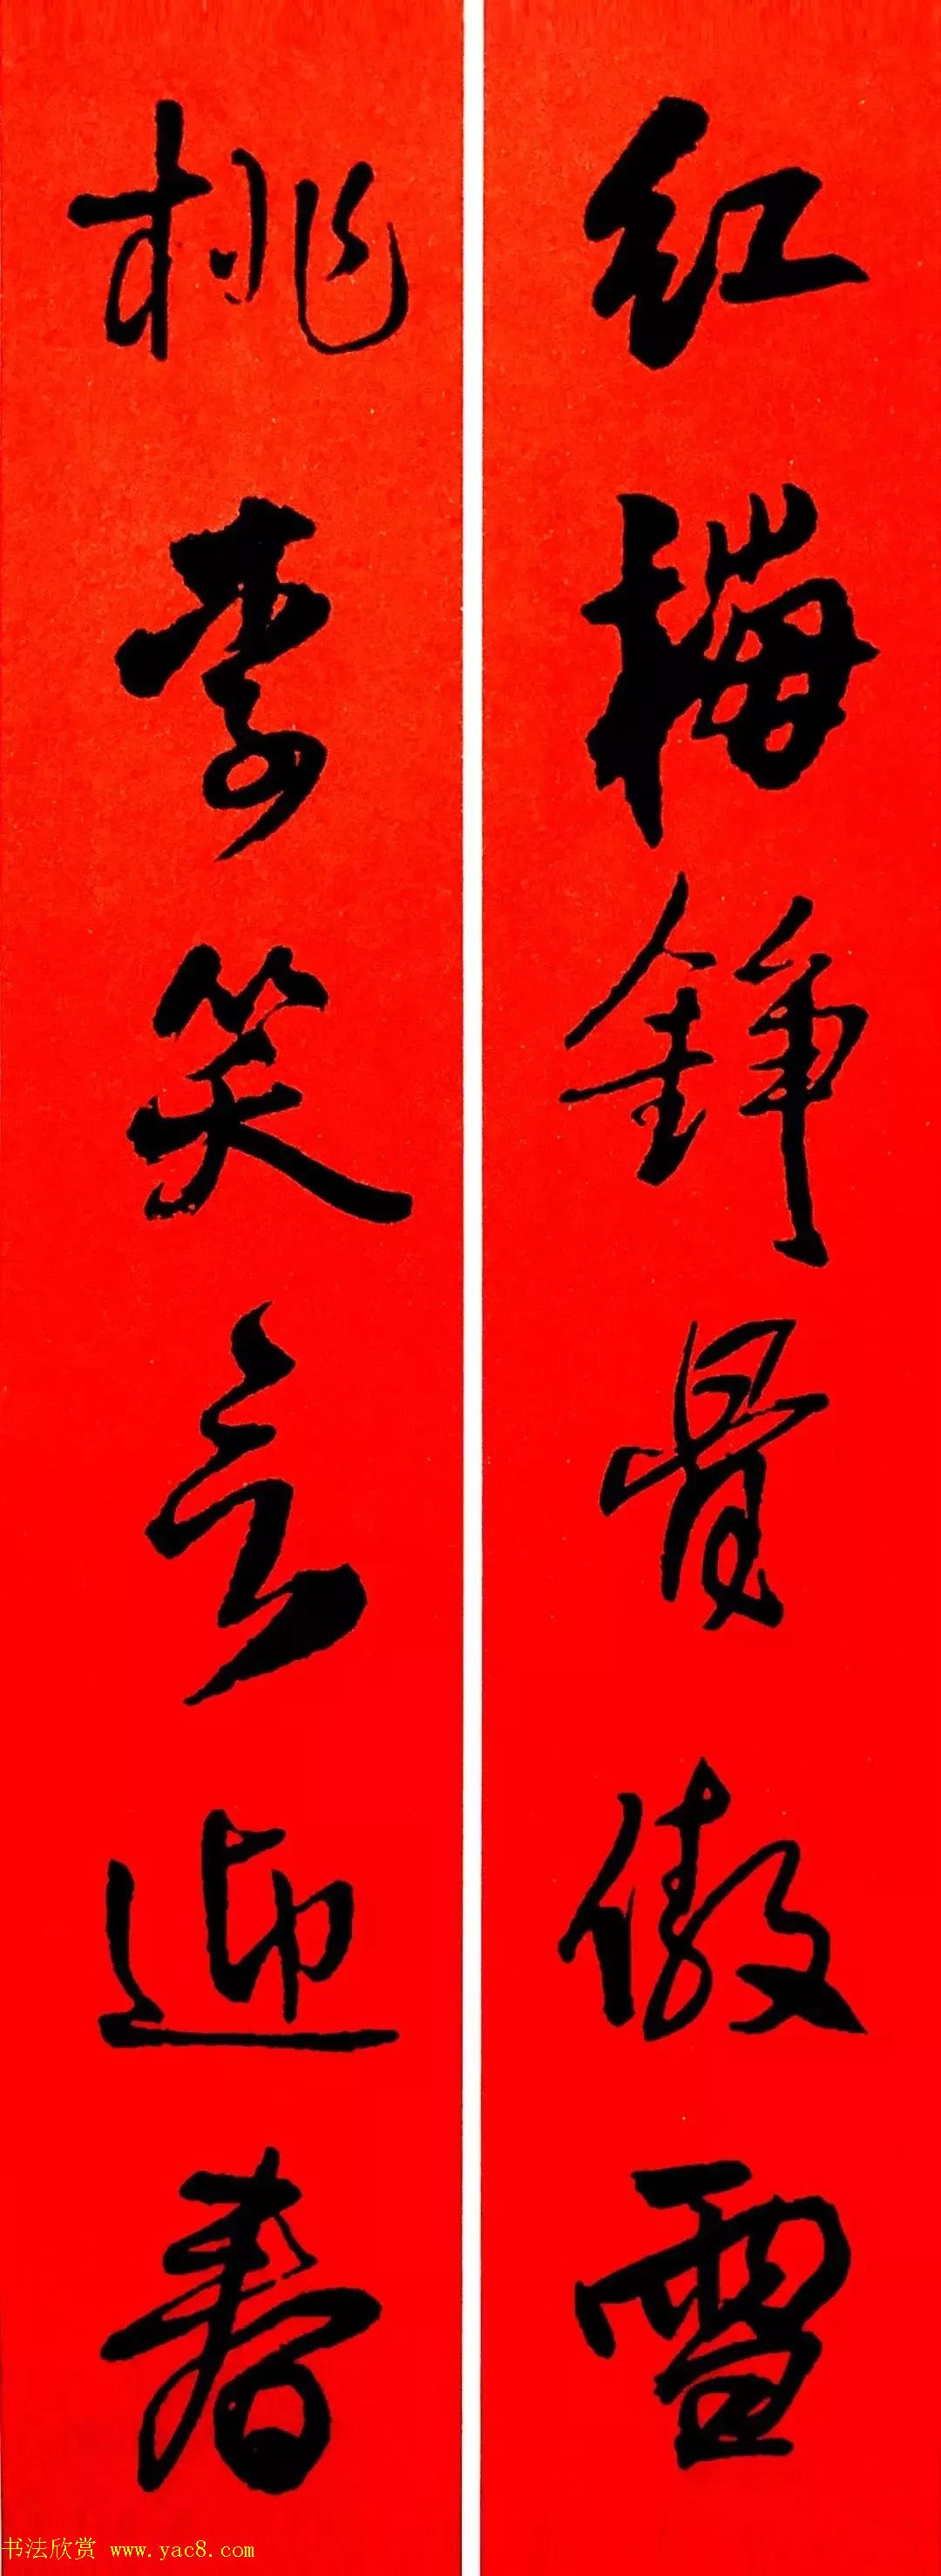 红梅铮骨傲雪
桃李笑言迎春
书法欣赏 www.yac8.com